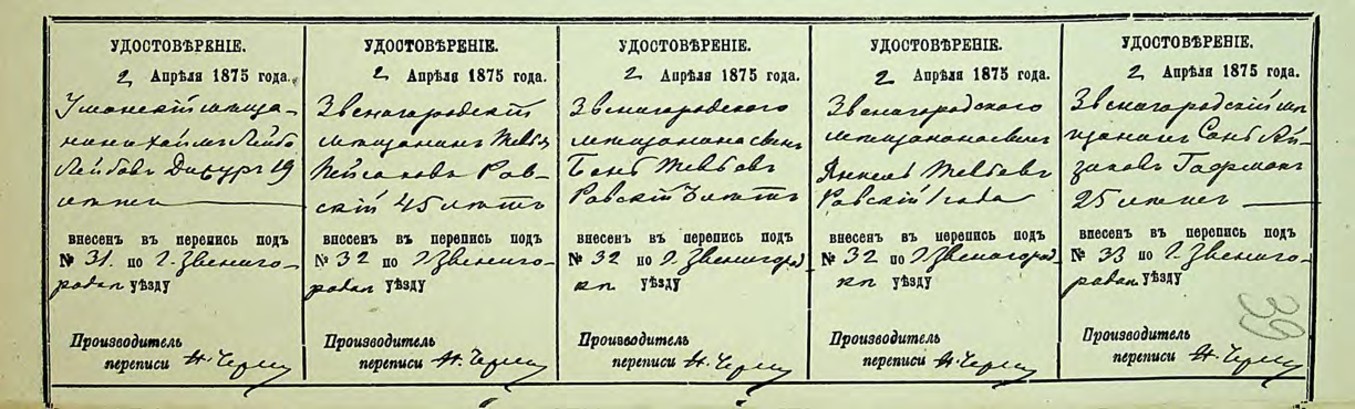 УДОСТОВѢРЕНІЕ.
2 Апрѣля 1875 года.
Уманскій мѣща-
нинъ Хаимъ Лейбо
Лейбовъ
19
лѣтъ
внесенъ въ перепись подъ
№ 31. по г. Звениго-
родкѣ уѣзду
Производитель
переписи Н.
УДОСТОВѢРЕНІЕ.
2 Апрѣля 1875 года.
Звенигородскій
мѣщанинъ
Пейсаховъ Рав-
скій 45 лѣтъ
внесенъ въ перепись подъ
№ 32 по г. Звениго-
родкѣ уѣзду
Производитель
переписи Н.
УДОСТОВѢРЕНІЕ.
2 Апрѣля 1875 года.
Звенигородскаго
мѣщанина сынъ
Равскій лѣтъ
внесенъ въ перепись подъ
№ 32 по г. Звенигород
кѣ уѣзду
Производитель
переписи Н.
УДОСТОВѢРЕНІЕ.
2 Апрѣля 1875 года.
Звенигородскаго
мѣщанина сынъ
Янкель
Равскій 1 года
внесенъ въ перепись подъ
№ 32 по г. Звенигород
кѣ уѣзду
Производитель
переписи Н.
УДОСТОВѢРЕНІЕ.
2 Апрѣля 1875 года.
Звенигородскій мѣ
щанинъ Ай-
зиковъ Гофманъ
25 лѣтъ
внесенъ въ перепись подъ
№ 33 по г. Звениго-
родкѣ уѣзду
Производитель
переписи Н.